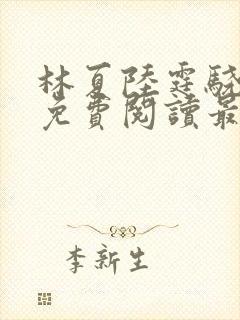 林夏陸霆驍
免費閱讀最
李新生